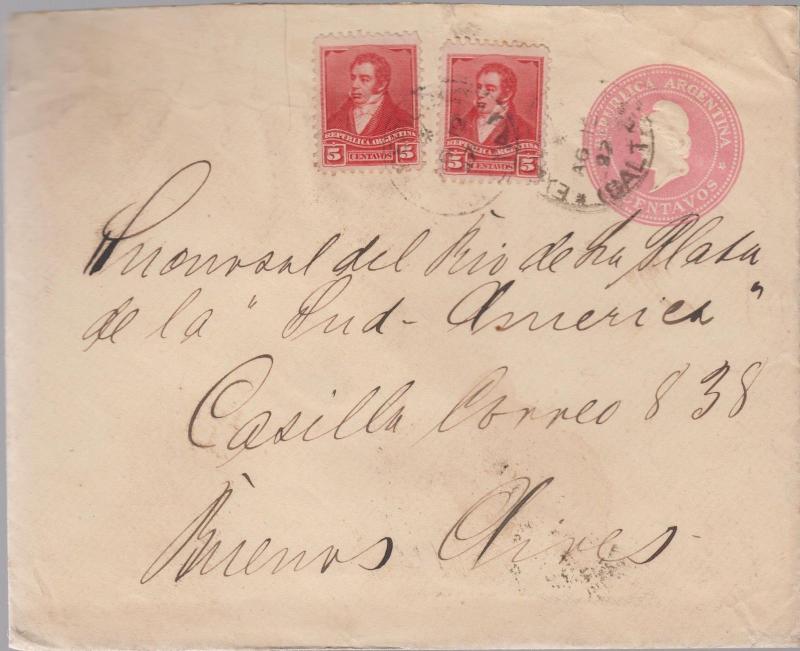 REPUBLICA ARGENTINA
5 CENTAVOS 5
REPUBLICA ARGENTINA
5 CENTAVOS 5
REPUBLICA ARGENTINA
CENTAVOS
AG
(SALTA)
Sucursal del Rio de La Plata
de la "Sud-America"
Casilla Correo 838
Buenos Aires